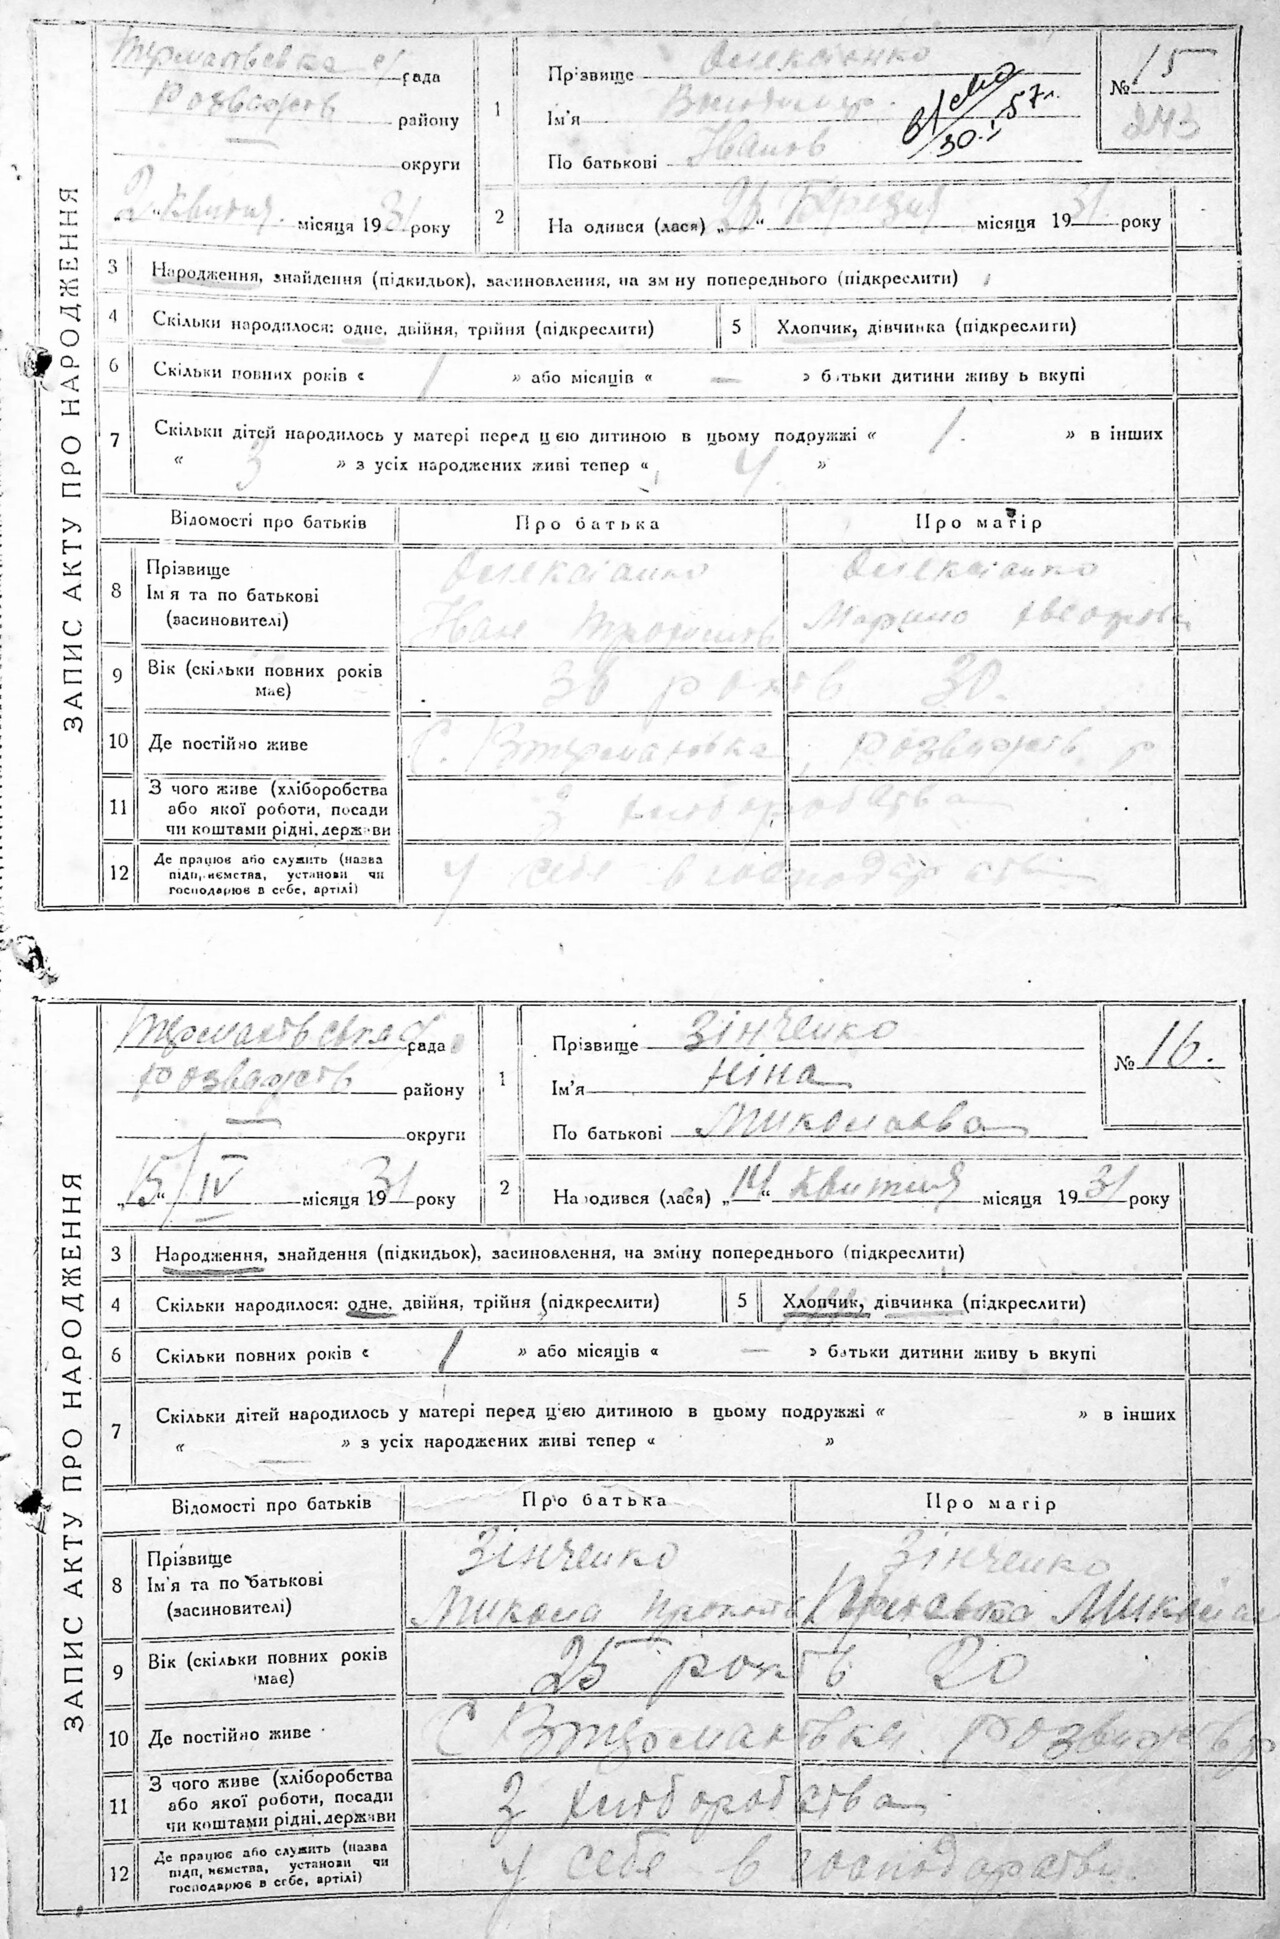 ЗАПИС АКТУ ПРО НАРОДЖЕННЯ
рада
району
округи
2 Квитня місяця 1931 року
1
Прізвище Олексіенко
Ім'я Володимир
По батькові Іванов
30.I.57 г.
№ 15
243
2
На одився (лася) „26“ Березня місяця 1931 року
3 Народження, знайдення (підкидьок), засиновлення, на зм ну попереднього (підкреслити)
4 Скільки народилося: одне, двійня, трійня (підкреслити)
5 Хлопчик, дівчинка (підкреслити)
6 Скільки повних років « 1 » або місяців « — » батьки дитини живу ь вкупі
7 Скільки дітей народилось у матері перед цією дитиною в цьому подружжі « 1. » в інших
« 3 » з усіх народжених живі тепер « 4 »
Відомості про батьків Про батька Про матір
8 Прізвище
Ім я та по батькові
(засиновителі)
Олексіенко Олексіенко
Іван
9 Вік (скільки повних років
має)
30 років 30.
10 Де постійно живе
с.
11 З чого живе (хліборобства
або якої роботи, посади
чи коштами рідні, держави
З хліборобства
12 Де працює або служить (назва
підприємства, установи чи
господарює в себе, артілі)
у себе в господарстві
ЗАПИС АКТУ ПРО НАРОДЖЕННЯ
рада
району
округи
„15/IV“ місяця 1931 року
1
Прізвище Зінченко
Ім'я Ніна
По батькові Миколаєва
№ 16.
2
На одився (лася) „14“ Квитня місяця 1931 року
3 Народження, знайдення (підкидьок), засиновлення, на зміну попереднього (підкреслити)
4 Скільки народилося: одне, двійня, трійня (підкреслити)
5 Хлопчик, дівчинка (підкреслити)
6 Скільки повних років « 1 » або місяців « — » батьки дитини живу ь вкупі
7 Скільки дітей народилось у матері перед цією дитиною в цьому подружжі « » в інших
« » з усіх народжених живі тепер « »
Відомості про батьків Про батька Про матір
8 Прізвище
Ім'я та по батькові
(засиновителі)
Зінченко Зінченко
Микола
9 Вік (скільки повних років
має)
25 років 20
10 Де постійно живе
С
11 З чого живе (хліборобства
або якої роботи, посади
чи коштами рідні, держави
З хліборобства
12 Де працює або служить (назва
підприємства, установи чи
господарює в себе, артілі)
у себе в господарстві.